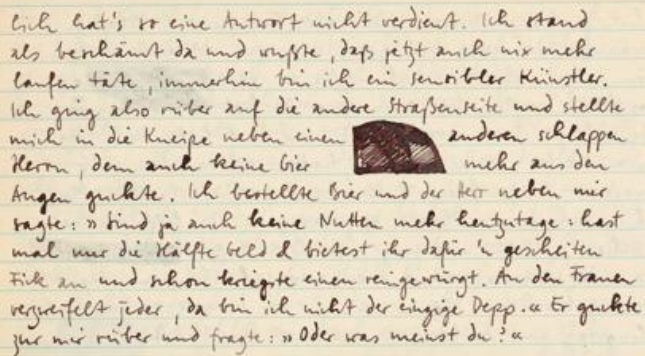 lich hat's so eine Antwort nicht verdient. Ich stand
als beschämt da und wußte, daß jetzt auch nix mehr
laufen täte, immerhin bin ich ein sensibler Künstler.
Ich ging also rüber auf die andere Straßenseite und stellte
mich in die Kneipe neben einen anderen schlappen
Herrn, dem auch keine Gier mehr aus den
Augen guckte. Ich bestellte Bier und der Herr neben mir
sagte: » Sind ja auch keine Nutten mehr heutzutage: hast
mal nur die Hälfte Geld & bietest ihr dafür 'n gescheiten
Fick an und schon kriegste einen reingewürgt. An den Frauen
verzweifelt jeder, da bin ich nicht der einzige Depp.« Er guckte
zur mir rüber und fragte: » Oder was meinst du?«